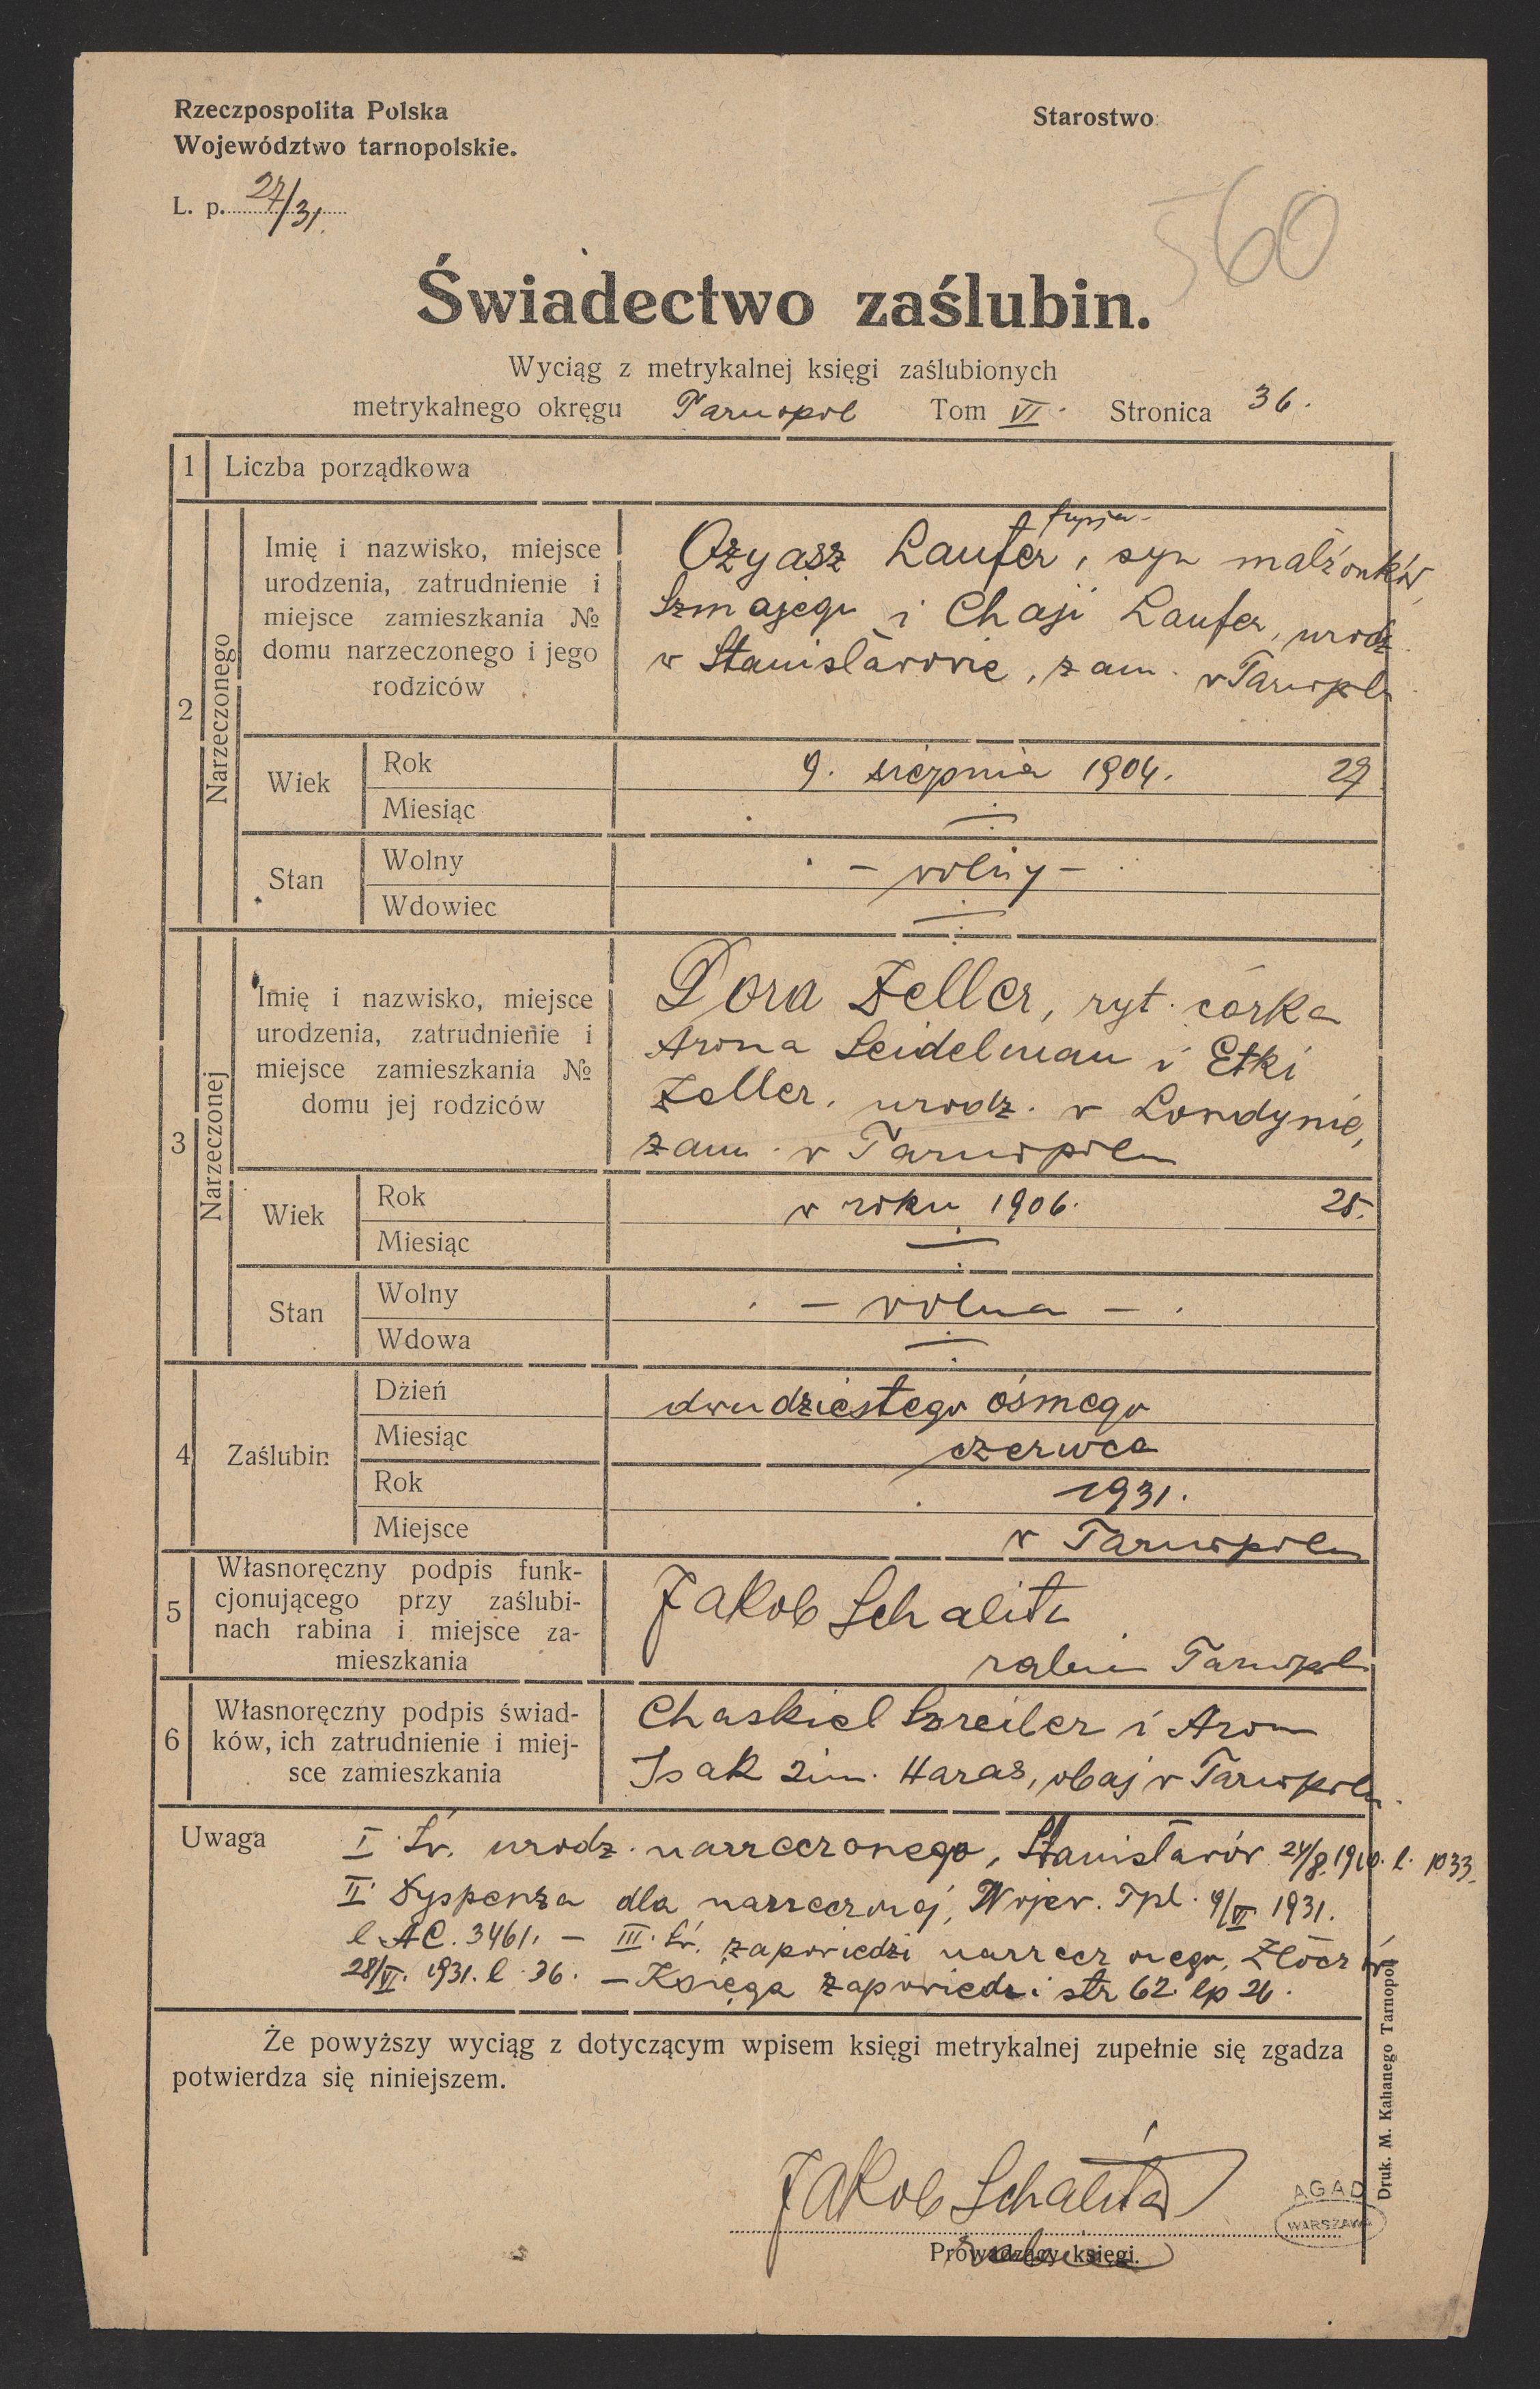 Rzeczpospolita Polska
Województwo tarnopolskie.
Starostwo
L. p. 27/31.
560
Świadectwo zaślubin.
Wyciąg z metrykalnej księgi zaślubionych
metrykalnego okręgu Tarnopol Tom VI. Stronica 36.
1 Liczba porządkowa
2 Narzeczonego
Imię i nazwisko, miejsce
urodzenia, zatrudnienie i
miejsce zamieszkania №
domu narzeczonego i jego
rodziców
Ozyasz Laufer, syn małżonków
Szmajego i Chaji Laufer, urodz.
w Stanisławowie, zam. w Tarnopolu
Wiek
Rok 9. sierpnia 1904. 27
Miesiąc
Stan
Wolny – wolny –
Wdowiec
3 Narzeczonej
Imię i nazwisko, miejsce
urodzenia, zatrudnienie i
miejsce zamieszkania №
domu jej rodziców
Dora Zeller, ryt. córka
Arona Seidelman i Etki
Zeller, urodz. w Londynie,
zam. w Tarnopolu
Wiek
Rok w roku 1906. 25.
Miesiąc
Stan
Wolny – wolna –
Wdowa
4 Zaślubin
Dzień dwudziestego ósmego
Miesiąc czerwca
Rok 1931.
Miejsce w Tarnopolu
5 Własnoręczny podpis funk-
cjonującego przy zaślubi-
nach rabina i miejsce za-
mieszkania
Jakob Schalita
rabin Tarnopol
6 Własnoręczny podpis świad-
ków, ich zatrudnienie i miej-
sce zamieszkania
Chaskiel Szreiber i Aron
Isak 2im. Haras, obaj w Tarnopolu.
Uwaga I. Św. urodz. narzeczonego, Stanisławów 24/8. 1910. l. 1033.
II. Dyspenza dla narzeczonej, Wojew. Tpl. 9/VI 1931.
l. AC. 3461. – III. Św. zapowiedzi narzeczonego, Złoczów
28/VI. 1931. l. 36. – Księga zapowiedzi str 62 lp 26.
Że powyższy wyciąg z dotyczącym wpisem księgi metrykalnej zupełnie się zgadza
potwierdza się niniejszem.
Jakob Schalita
Prowadzący księgi.
AGAD
WARSZAWA
Druk. M. Kahanego Tarnopol